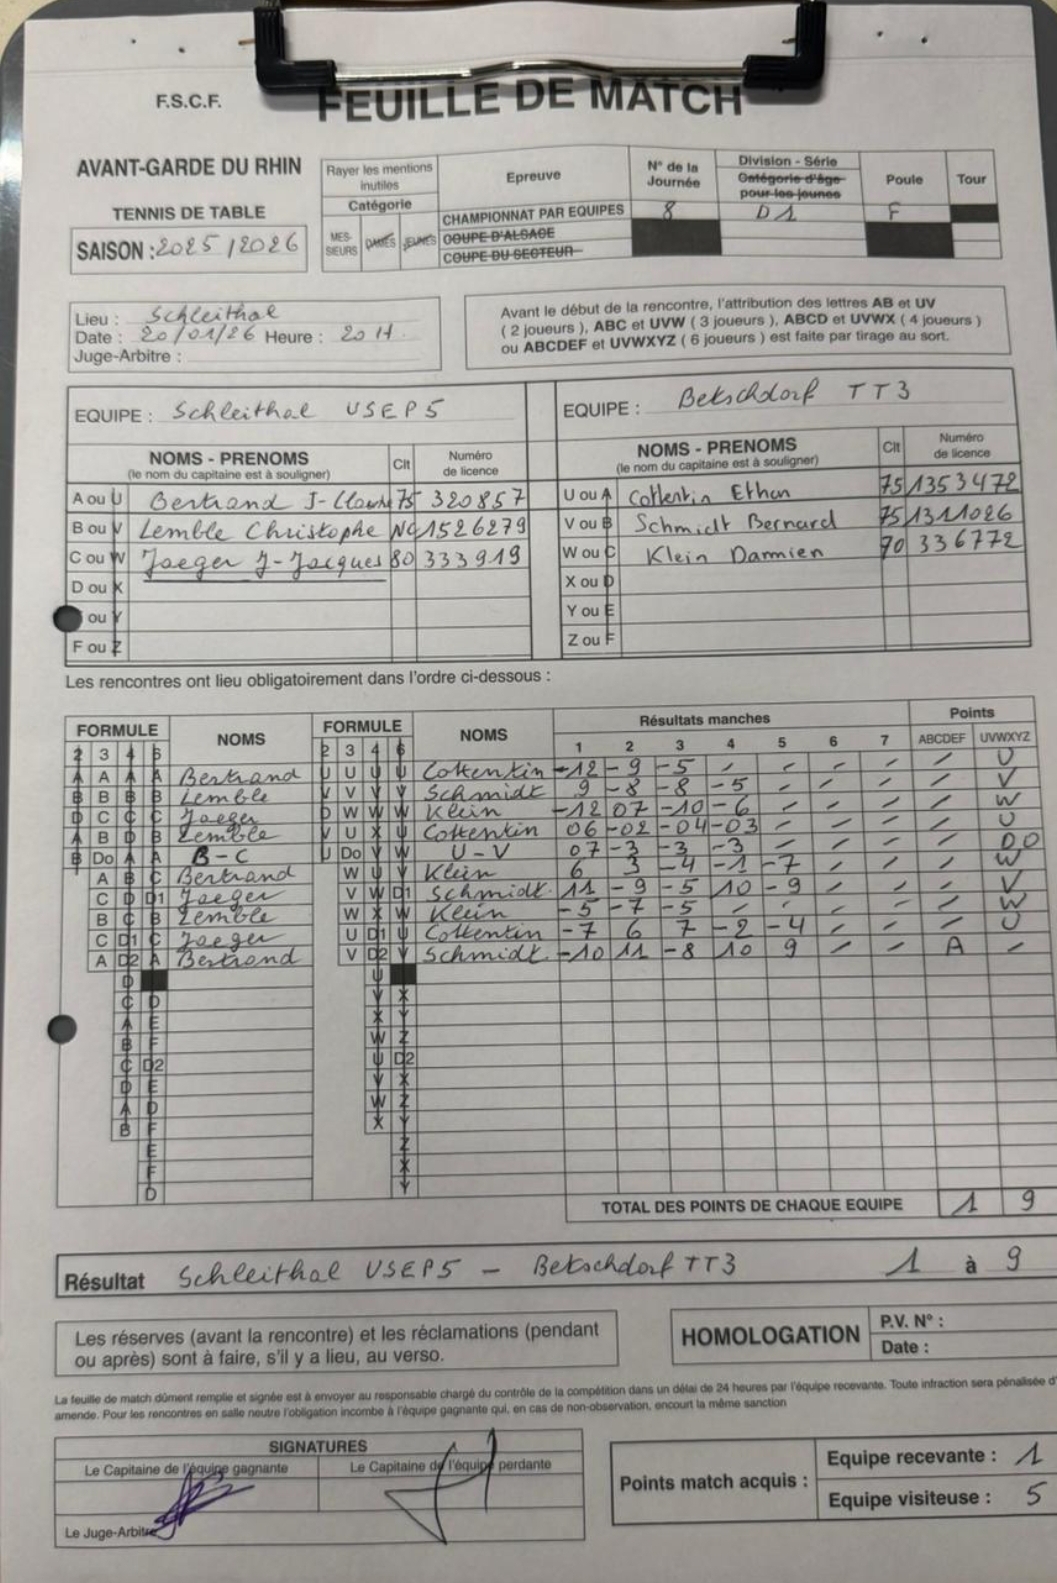 FEUILLE DE MATCH
F.S.C.F.
AVANT-GARDE DU RHIN
TENNIS DE TABLE
SAISON : 2025 / 2026
Rayer les mentions inutiles
Catégorie
MES-SIEURS DAMES JEUNES
Epreuve
CHAMPIONNAT PAR EQUIPES
COUPE D'ALSACE
COUPE DU SECTEUR
N° de la Journée
8
Division - Série
Catégorie d'âge pour les jeunes
D1
Poule
F
Tour
Lieu : Schleithal
Date : 20/01/26 Heure : 20 H.
Juge-Arbitre :
Avant le début de la rencontre, l'attribution des lettres AB et UV
( 2 joueurs ), ABC et UVW ( 3 joueurs ), ABCD et UVWX ( 4 joueurs )
ou ABCDEF et UVWXYZ ( 6 joueurs ) est faite par tirage au sort.
EQUIPE : Schleithal USEP5
NOMS - PRENOMS Clt Numéro
(le nom du capitaine est à souligner) de licence
A ou U Bertrand J-Claude 75 320857
B ou V Lemble Christophe NC 1526279
C ou W Jaeger J-Jacques 80 333919
D ou X
ou Y
F ou Z
EQUIPE : Betschdorf TT3
NOMS - PRENOMS Clt Numéro
(le nom du capitaine est à souligner) de licence
U ou A Cottentin Ethan 75 1353472
V ou B Schmidt Bernard 75 1311026
W ou C Klein Damien 70 336772
X ou D
Y ou E
Z ou F
Les rencontres ont lieu obligatoirement dans l'ordre ci-dessous :
FORMULE NOMS FORMULE NOMS Résultats manches Points
2 3 4 6 2 3 4 6 1 2 3 4 5 6 7 ABCDEF UVWXYZ
A A A A Bertrand U U U U Cottentin -12 -9 -5 / / / / / U
B B B B Lemble V V V V Schmidt 9 -8 -8 -5 / / / / V
D C C C Jaeger D W W W Klein -12 07 -10 -6 / / / / W
A B D B Lemble V U X U Cottentin 06 -02 -04 -03 / / / / U
B Do A A B-C U Do V W U-V 07 -3 -3 -3 / / / / DO
A B C Bertrand W U V Klein 6 3 -4 -1 -7 / / / W
C D D1 Jaeger V W D1 Schmidt 11 -9 -5 10 -9 / / / V
B C B Lemble W X W Klein -5 -7 -5 / / / / / W
C D1 C Jaeger U D1 U Cottentin -7 6 7 -2 -4 / / / U
A D2 A Bertrand V D2 V Schmidt -10 11 -8 10 9 / / A /
D U
C D V X
A E X Y
B F W Z
C D2 U D2
D E V X
A D W Z
B F X Y
E Z
F X
D Y
TOTAL DES POINTS DE CHAQUE EQUIPE 1 9
Résultat Schleithal USEP5 - Betschdorf TT3 1 à 9
Les réserves (avant la rencontre) et les réclamations (pendant
ou après) sont à faire, s'il y a lieu, au verso.
HOMOLOGATION
P.V. N° :
Date :
La feuille de match dûment remplie et signée est à envoyer au responsable chargé du contrôle de la compétition dans un délai de 24 heures par l'équipe recevante. Toute intraction sera pénalisée d'
amende. Pour les rencontres en salle neutre l'obligation incombe à l'équipe gagnante qui, en cas de non-observation, encourt la même sanction
SIGNATURES
Le Capitaine de l'équipe gagnante Le Capitaine de l'équipe perdante
Le Juge-Arbitre
Points match acquis :
Equipe recevante : 1
Equipe visiteuse : 5